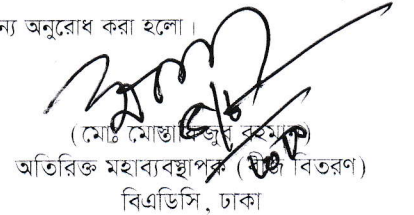 ন্য অনুরোধ করা হলো।
(মোঃ মোস্তাফিজুর রহমান)
অতিরিক্ত মহাব্যবস্থাপক (বীজ বিতরণ)
বিএডিসি, ঢাকা